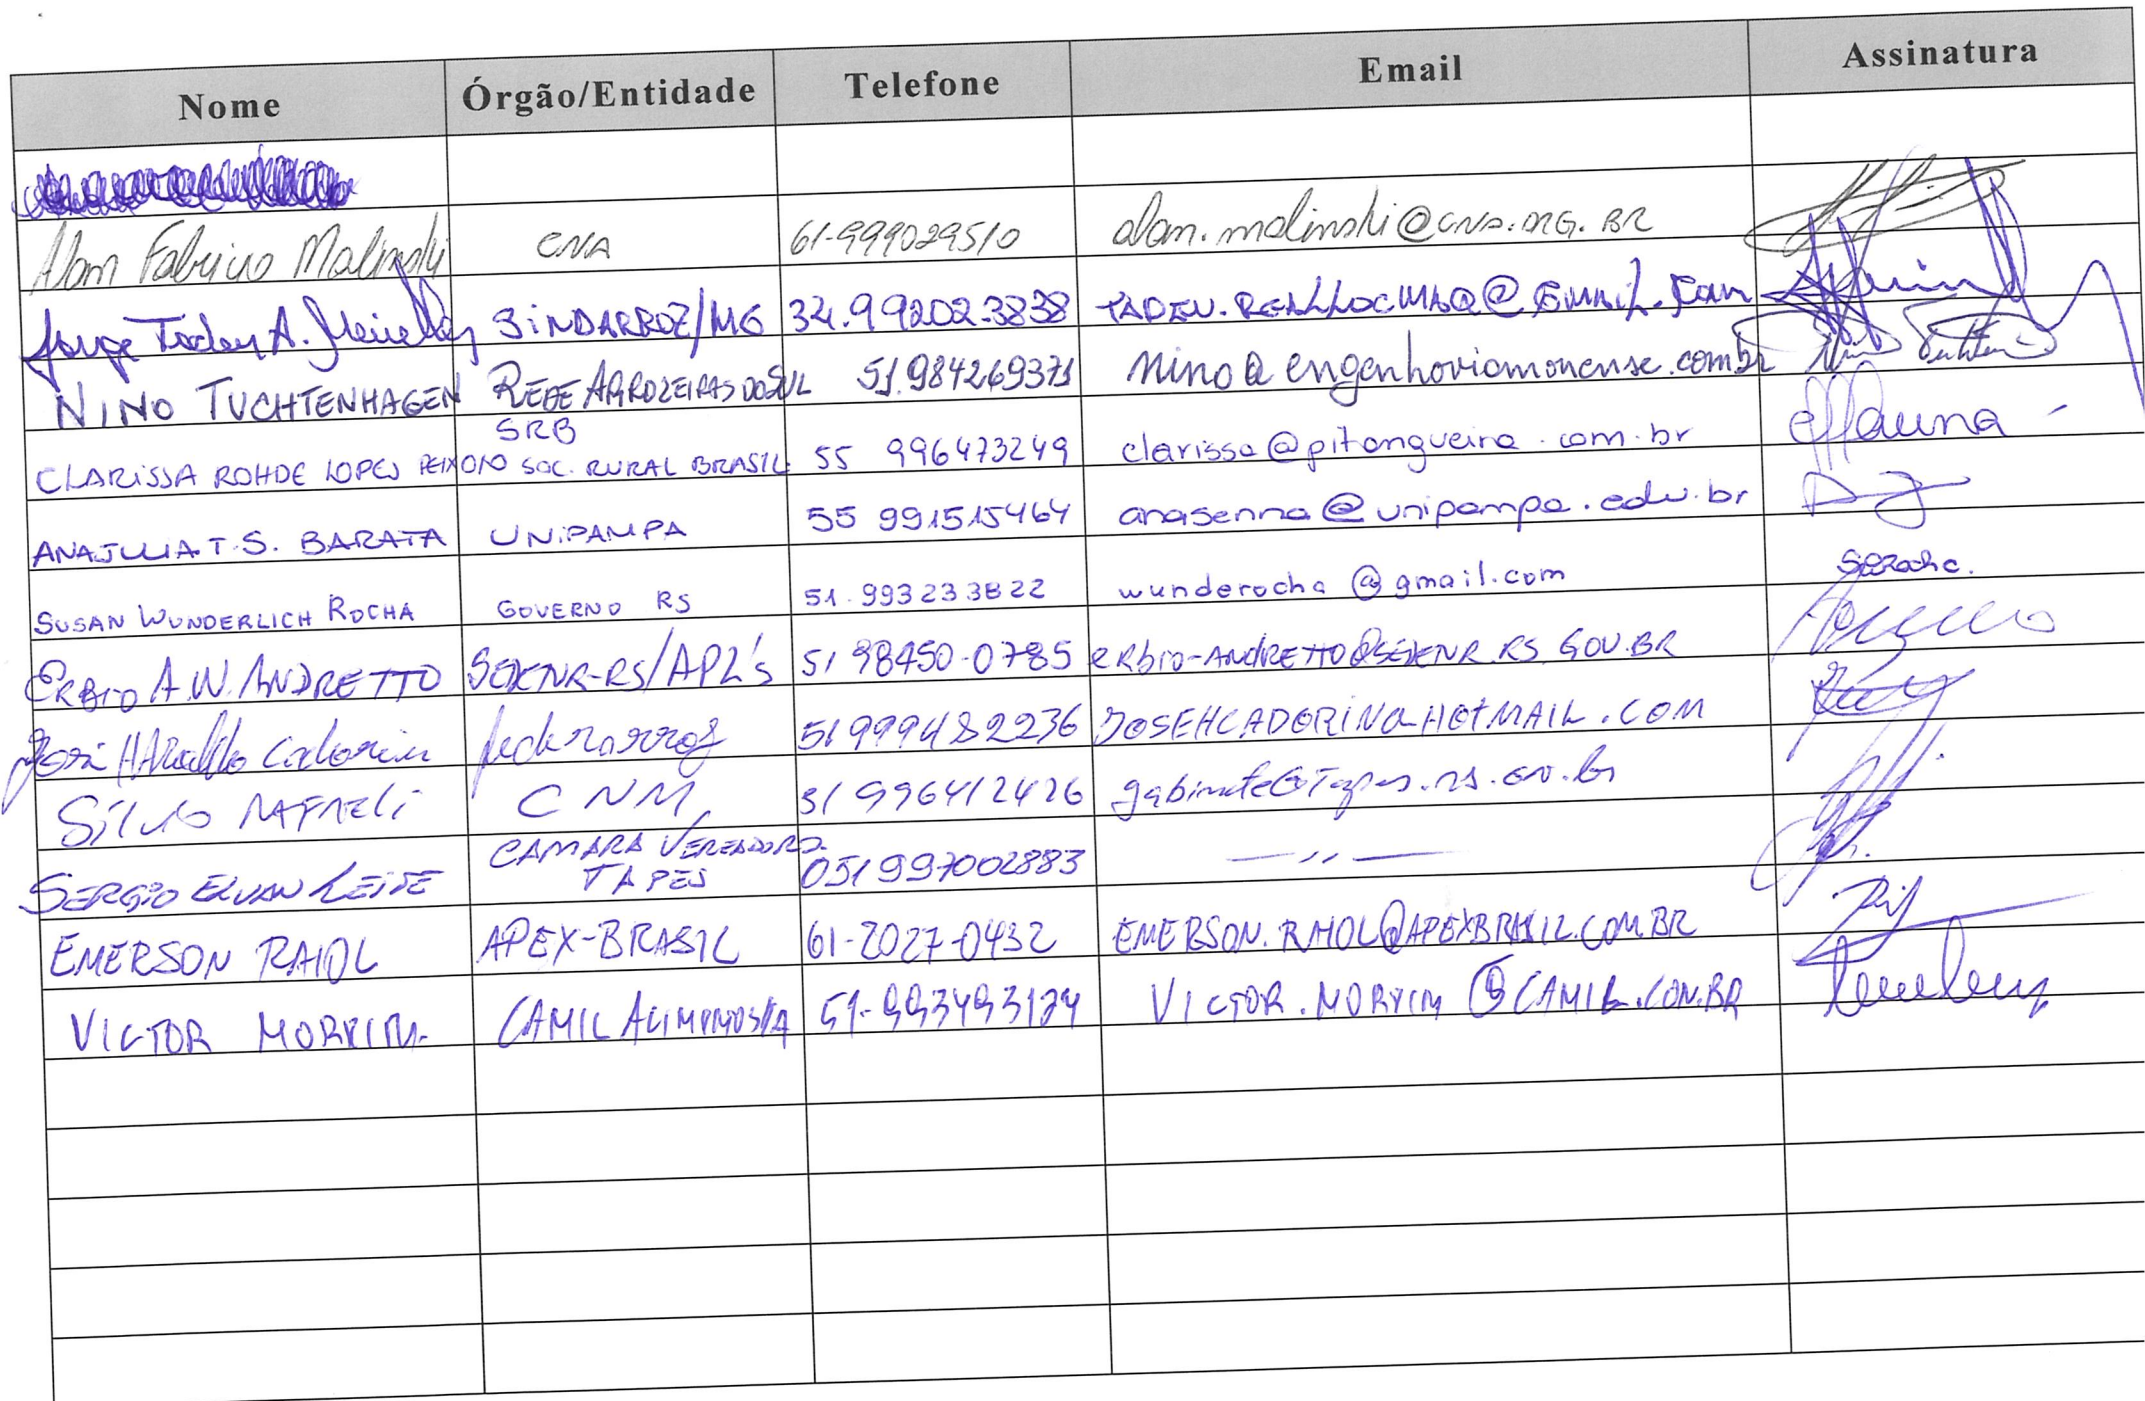 Nome Órgão/Entidade Telefone Email Assinatura
Alan Fabricio Malinski CNA 61-999029510 alan.malinski@CNA.ORG.BR
Jorge Tadeu A. SINDARROZ/MG 34.99202.3838
NINO TUCHTENHAGEN REDE ARROZEIRAS DO SUL 51.984269371 nino@engenhoviamonense.com.br
CLARISSA ROHDE LOPES PEIXOTO SRB SOC. RURAL BRASIL. 55 996473249 clarissa@pitangueira.com.br
ANAJULIA T. S. BARATA UNIPAMPA 55 991515464 anasenna@unipampa.edu.br
SUSAN WUNDERLICH ROCHA GOVERNO RS 51.993233822 wunderocha@gmail.com SRocha.
ERBIO A.W. ANDRETTO SEDENR-RS/APL's 51 98450-0785 ERBIO-ANDRETTO@SEDENR.RS.GOV.BR
José HAroldo Cadorin federarroz 51 999482236 JOSEHCADORIN@HOTMAIL.COM
Silvio RAFAELI CNM 51 996412426 gabinete@Tapes.rs.gov.br
SERGIO ELVAN LEITE CAMARA VEREADORES TAPES 051997002883 — '' —
EMERSON RAIOL APEX-BRASIL 61-2027-0432 EMERSON.RAIOL@APEXBRASIL.COM.BR
VICTOR MORXIM. CAMIL ALIMENTOS S/A 51-993493124 VICTOR.MORXIM@CAMIL.COM.BR